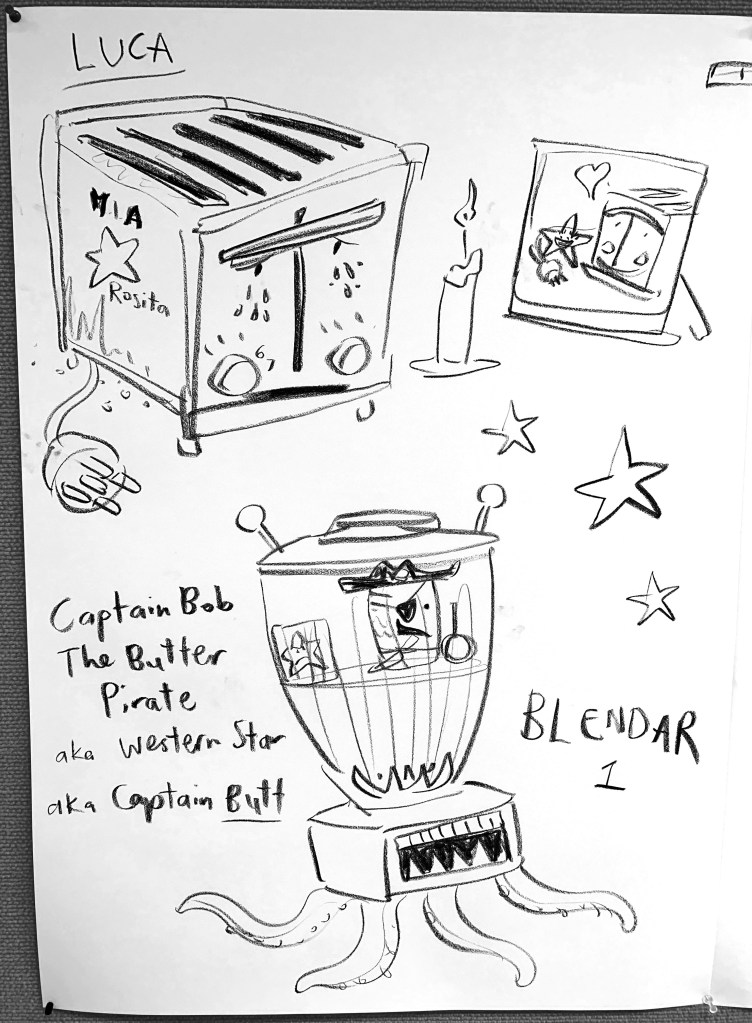 LUCA
MIA
Rosita
67
Captain Bob
The Butter
Pirate
aka Western Star
aka Captain Butt
BLENDAR
1